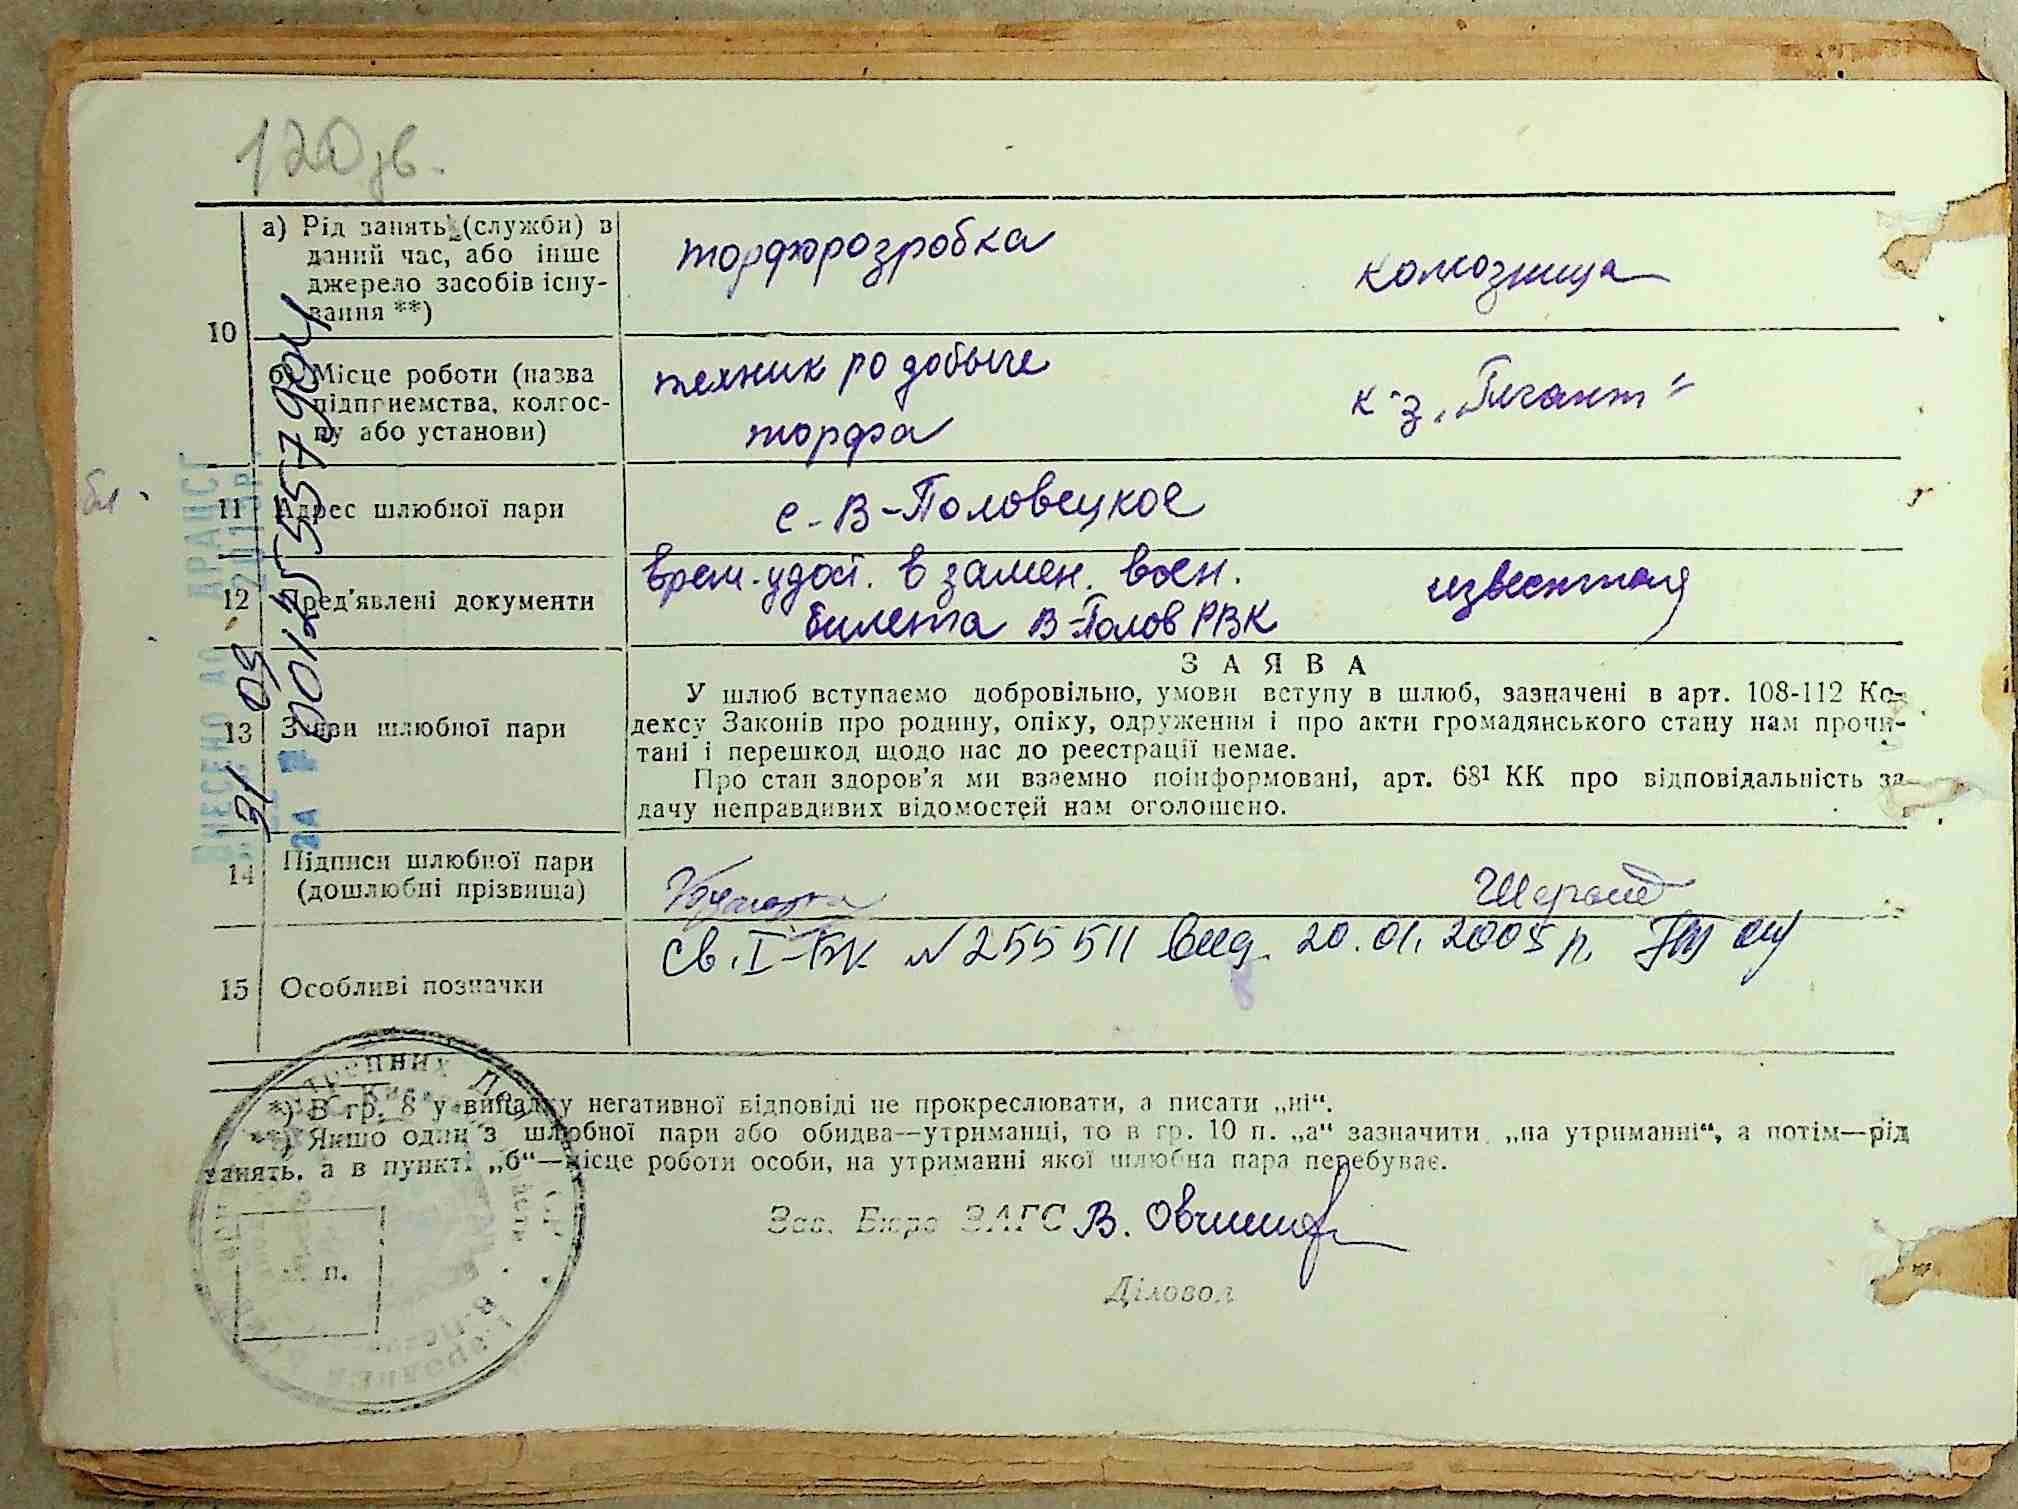 120 зв.
10
а) Рід занять (служби) в
даний час, або інше
джерело засобів існу-
вання **)
торфорозробка
колхозница
б) Місце роботи (назва
підприємства, колгос-
пу або установи)
техник по добыче
торфа
к-з „Гигант“
11 Адрес шлюбної пари
с-В-Половецкое
12 Пред'явлені документи
врем. удост. в замен. воен.
билета В-Полов РВК
известная
13 Заяви шлюбної пари
ЗАЯВА
У шлюб вступаємо добровільно, умови вступу в шлюб, зазначені в арт. 108-112 Ко-
дексу Законів про родину, опіку, одруження і про акти громадянського стану нам прочи-
тані і перешкод щодо нас до реєстрації немає.
Про стан здоров'я ми взаємно поінформовані, арт. 68¹ КК про відповідальність за
дачу неправдивих відомостей нам оголошено.
14 Підписи шлюбної пари
(дошлюбні прізвища)
15 Особливі позначки
Св. I-БК № 255511 вид. 20.01.2005 р.
*) В гр. 8 у випадку негативної відповіді не прокреслювати, а писати „ні“.
**) Якщо один з шлюбної пари або обидва—утриманці, то в гр. 10 п. „а“ зазначити „на утриманні“, а потім—рід
занять, а в пункті „б“—місце роботи особи, на утриманні якої шлюбна пара перебуває.
Зав. Бюро ЗАГС В.
Діловод
п.
ВНЕСЕНО ДО ДРАЦСГ
31 03
ЗА № 00125557904